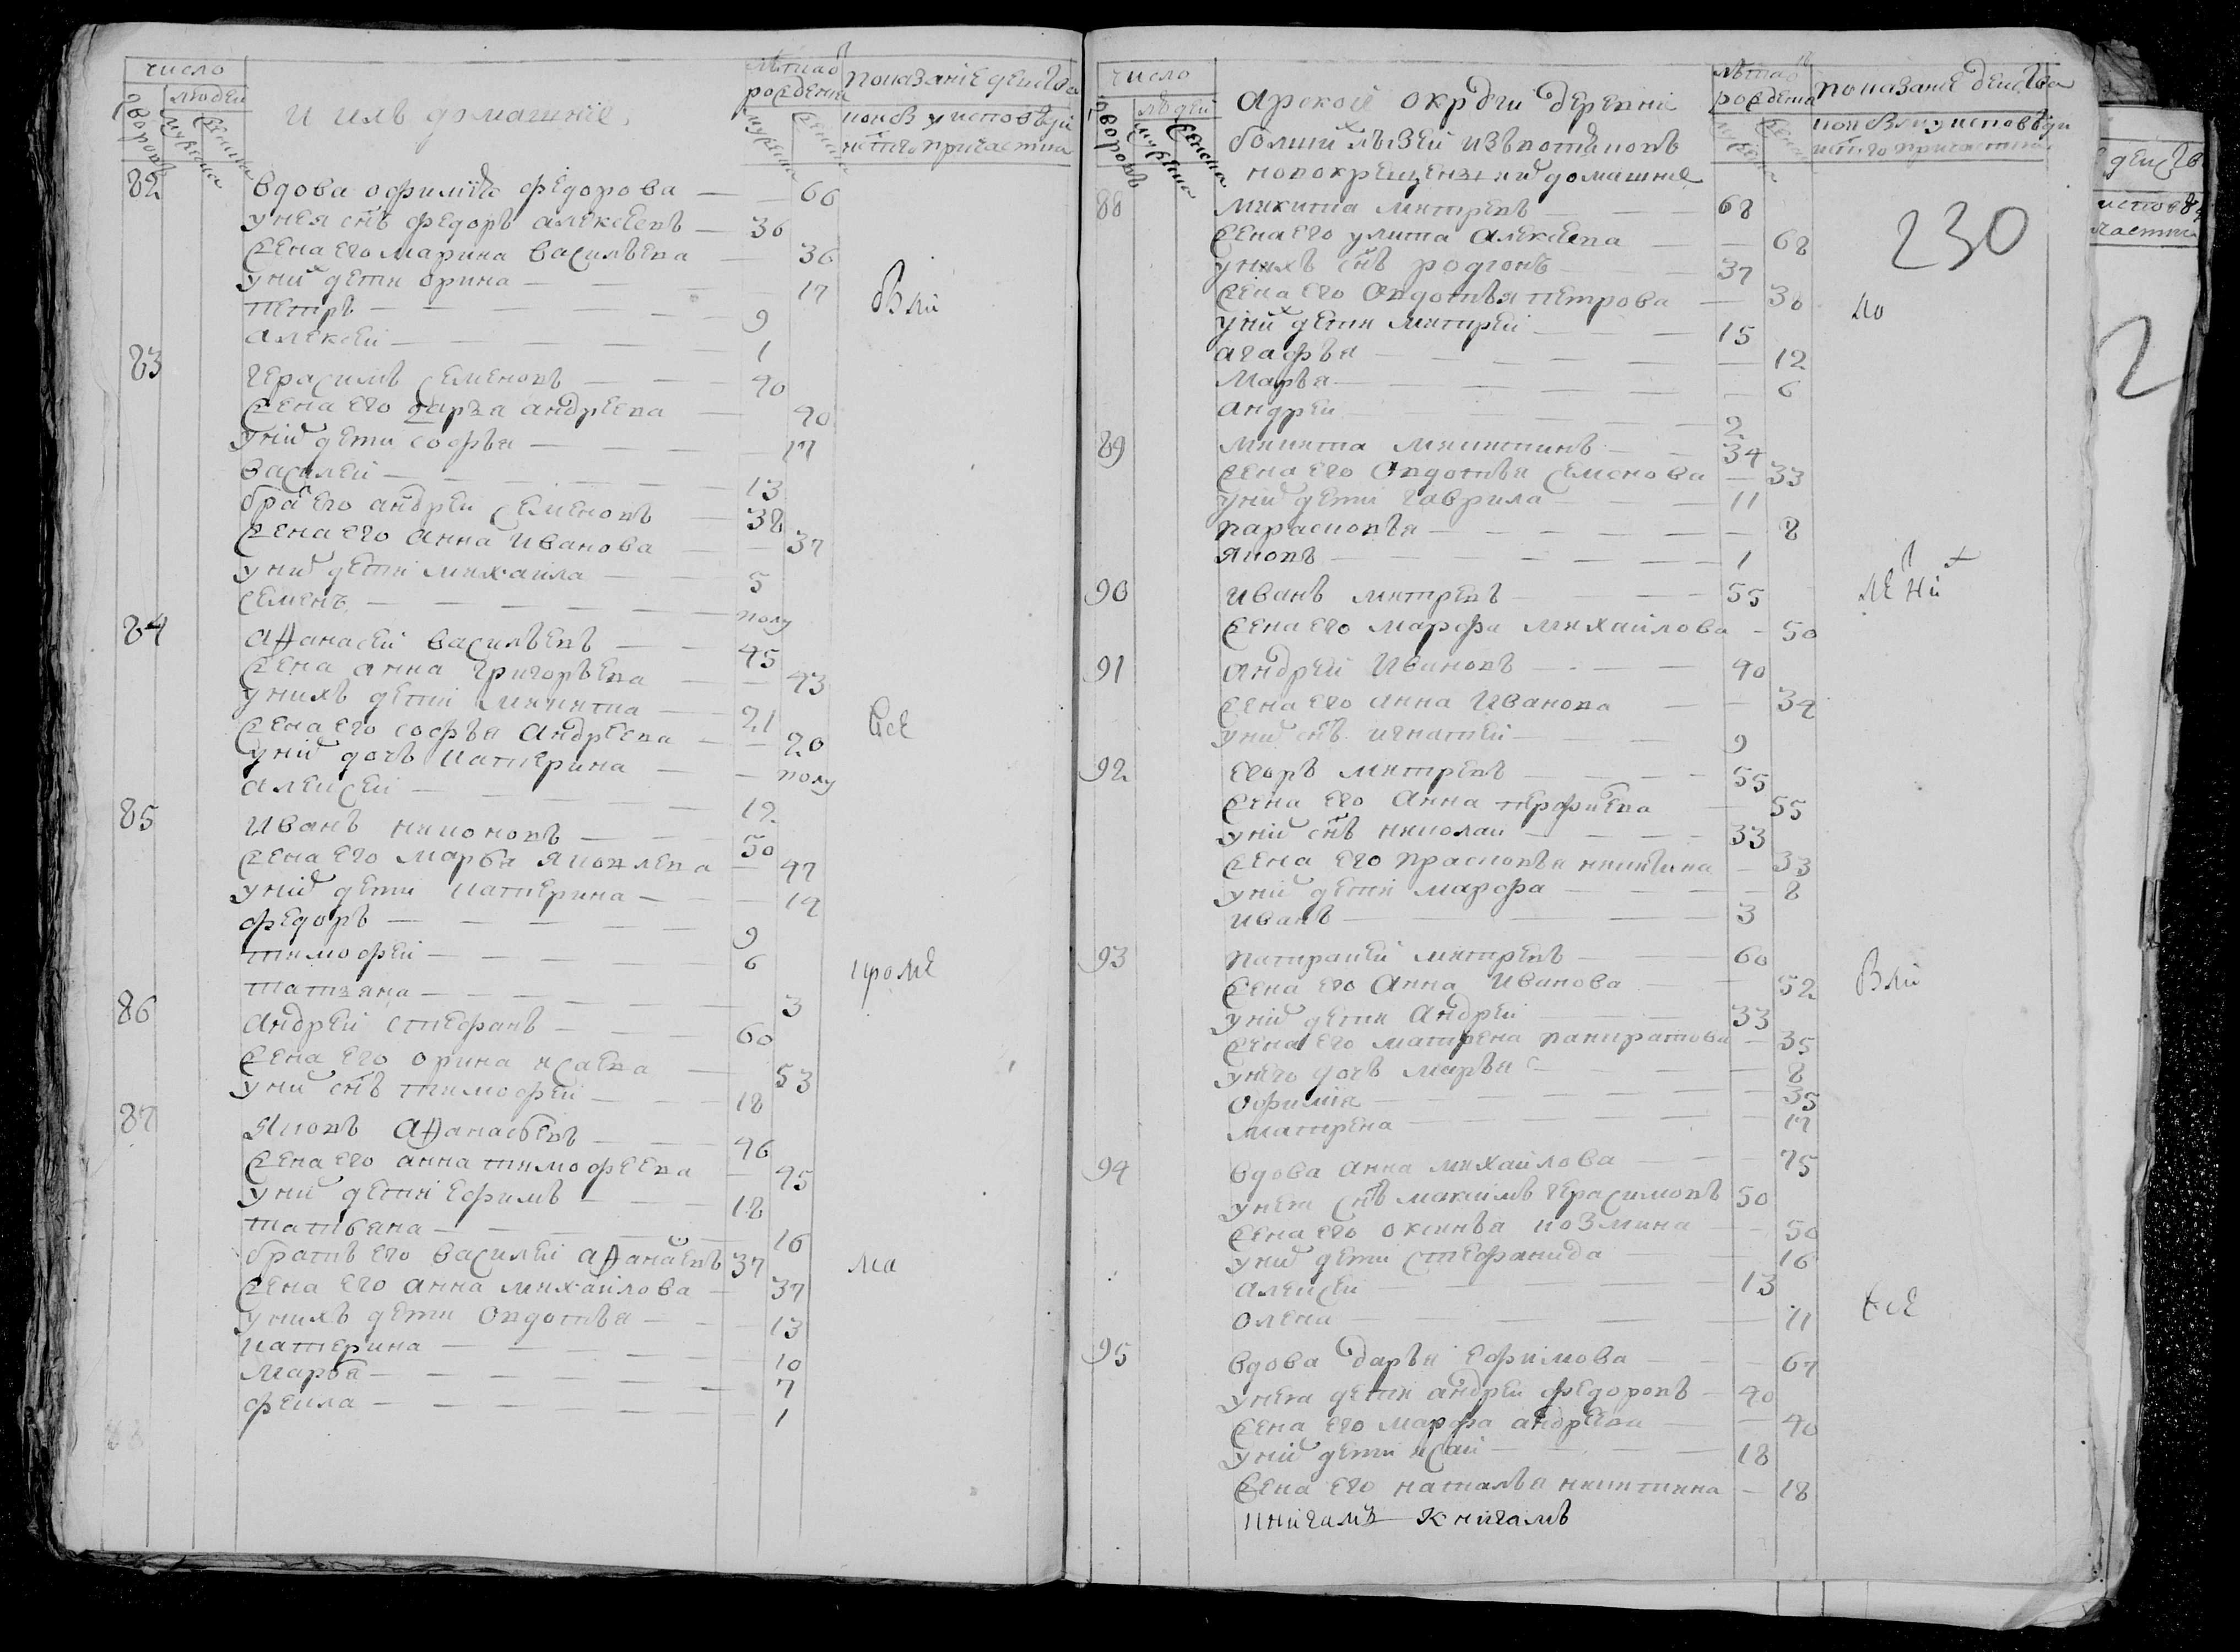 число
дворовъ
людей
мужеска
женска
и ихъ домашніе
лѣта о рождени
мужеска
женска
показаніе действа
82 вдова офимія федорова — 66
у нея снъ федоръ алексеевъ — 36
жена его марина васильева — 36
у ний дети орина — 17
петръ — 9
алексей — 1
83 герасимъ семеновъ — 40
жена его дарья андреева — 40
у ний дети софья — 17
василей — 13
бра его андрей семеновъ — 38
жена его анна иванова — 37
у ний дети михаила — 5
семенъ — полу
84 афанасей васильевъ — 45
жена анна григорьева — 43
у нихъ дети микита — 21
жена его софья андреева — 20
у ний дочь катерина — полу
алексей — 12
85 иванъ никоновъ — 50
жена его марья яковлева — 47
у ний дети катерина — 14
федоръ — 9
тимофей — 6
татьяна — 3
86 андрей стефанъ — 60
жена его орина исаева — 53
у ний снъ тимофей — 18
87 яковъ афанасьевъ — 46
жена его анна тимофеева — 45
у ний дети ефимъ — 18
татьяна — 16
братъ его василей афанаевъ 37
жена его анна михайлова — 37
у нихъ дети овдотья — 13
катерина — 10
марья — 7
фекла — 1
бли
все
кроме
ма
число
дворовъ
людей
мужеска
женска
арской округи деревни
болши лызей изъ вотяковъ
новокрещены и й домашние
лѣта о рождени
показание действа
230
88 микита митревъ — 68
жена его улита алексеева — 68
у нихъ снъ родионъ — 37
жена его овдотья петрова — 36
у ний дети матвей — 15
агафья — 12
марья — 6
андрей — 2
89 микита микитинъ — 34
жена его овдотья семенова — 33
у ний дети гаврила — 11
парасковья — 8
яковъ — 1
90 иванъ митревъ — 55
жена его марфа михайлова — 50
91 андрей ивановъ — 40
жена его анна иванова — 34
у ний снъ игнатей — 9
92 егоръ митревъ — 55
жена его анна перфиева — 55
у ний снъ николай — 33
жена его прасковья никитина — 33
у ний дети марфа — 8
иванъ — 3
93 патракей митревъ — 60
жена его анна иванова — 52
у ний дети андрей — 33
жена его матрена панкратова — 35
у него дочь марья — 8
офимия — 35
матрена — 17
94 вдова анна михайлова — 75
у нея снъ максимъ герасимовъ 50
жена его оксинья козмина — 50
у ний дети стефанида — 16
алексей — 13
олена — 11
95 вдова дарья ефимова — 67
у нея дети андрей федоровъ — 40
жена его марфа андреева — 40
у ний дети исай — 18
жена его наталья никитина — 18
книгамъ книгамъ
но
ле ни
вли
все
2